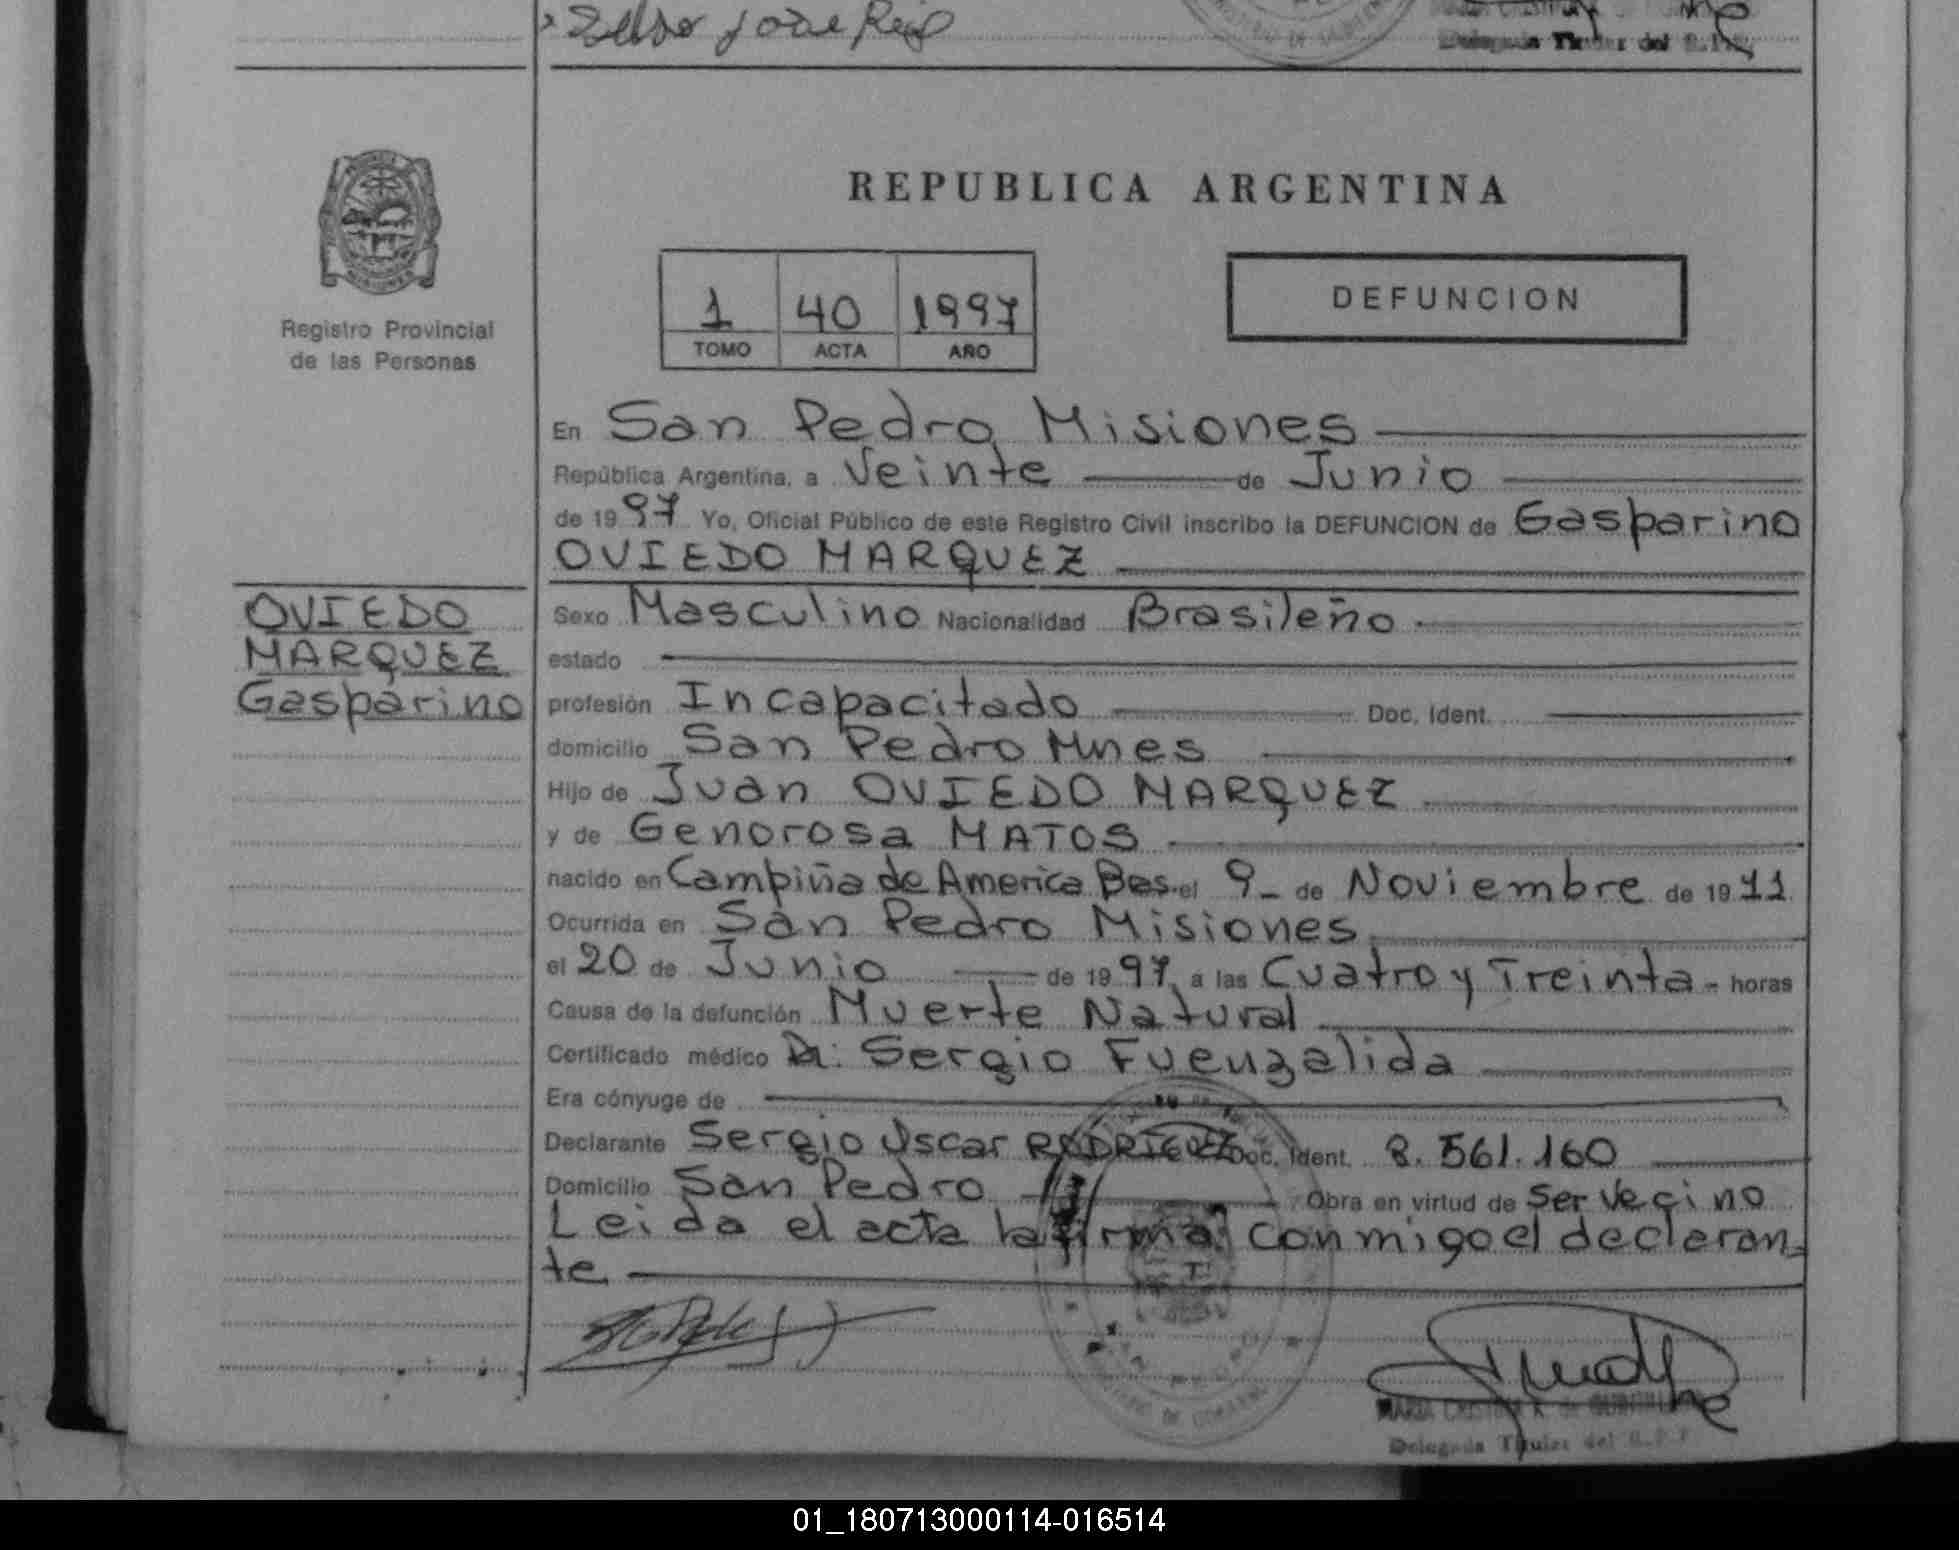 REPUBLICA ARGENTINA
Registro Provincial
de las Personas
1 40 1997
TOMO ACTA AÑO
DEFUNCION
En San Pedro Misiones
República Argentina, a Veinte de Junio
de 1997 Yo, Oficial Público de este Registro Civil inscribo la DEFUNCION de Gasparino
OVIEDO MARQUEZ
OVIEDO
MARQUEZ
Gasparino
Sexo Masculino Nacionalidad Brasileño
estado
profesión Incapacitado Doc. Ident.
domicilio San Pedro Mnes
Hijo de Juan OVIEDO MARQUEZ
y de Genorosa MATOS
nacido en Campiña de America Bas. el 9 de Noviembre de 1911
Ocurrida en San Pedro Misiones
el 20 de Junio de 1997, a las Cuatro y Treinta - horas
Causa de la defunción Muerte Natural
Certificado médico Dr: Sergio Fuenzalida
Era cónyuge de
Declarante Sergio Oscar RODRIGUEZ Doc. Ident. 8.561.160
Domicilio San Pedro Obra en virtud de Ser Vecino
Leida el acta la firma conmigo el declaran
te
Delegada Titular del R.P.P
01_180713000114-016514